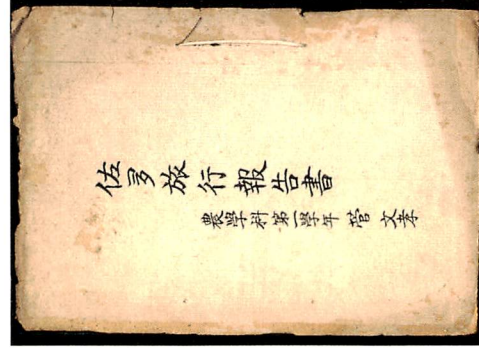 佐多旅行報告書
農學科第一學年 菅 文孝